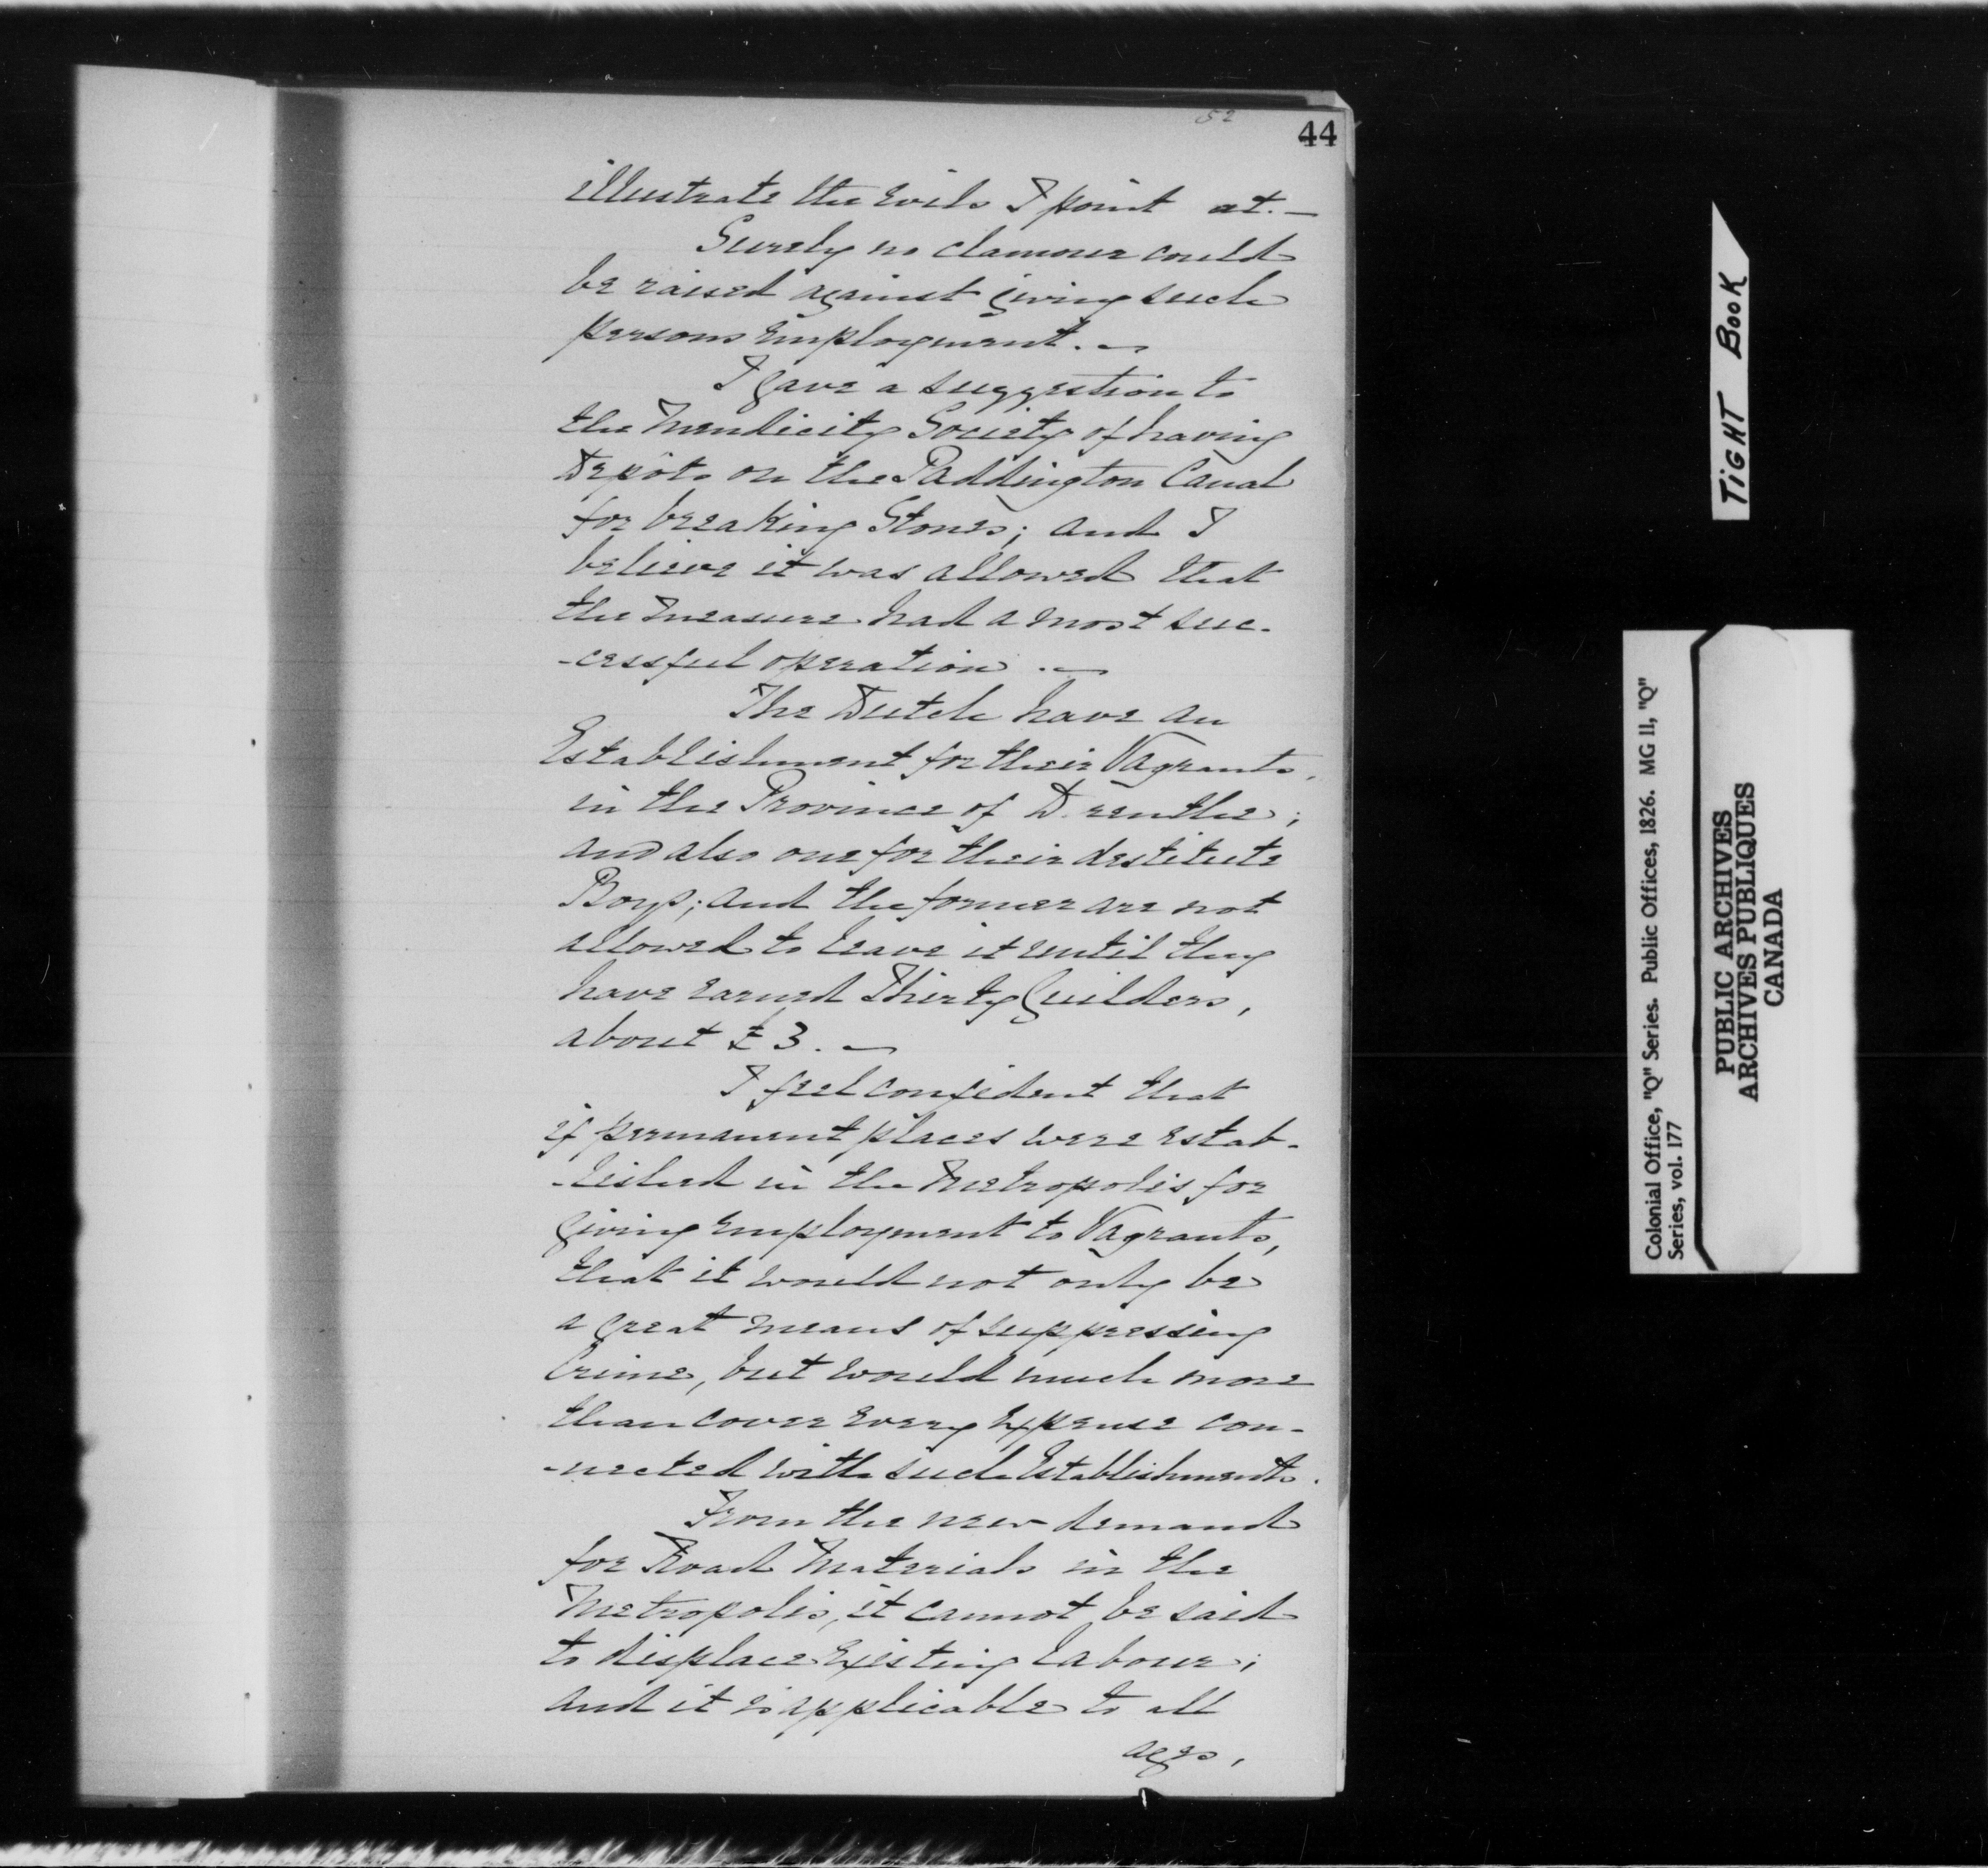 52
44
illustrate the Evils I point at. —
Surely no clamour could
be raised against giving such
persons employment. —
I gave a suggestion to
the Mendicity Society of having
Depôts on the Paddington Canal
for breaking Stones; and I
believe it was allowed that
the measure had a most suc-
-cessful operation. —
The Dutch have an
Establishment for their Vagrants,
in the Province of D. renthe;
and also one for their destitute
Boys; and the former are not
allowed to leave it until they
have earned Thirty Guilders,
about £3. —
I feel confident that
if permanent places were estab-
-lished in the Metropolis for
giving employment to Vagrants,
that it would not only be
a great means of suppressing
Crime, but would much more
than cover every Expense con-
-nected with such Establishments.
From the new demand
for Road Materials in the
Metropolis, it cannot be said
to displace Existing labour;
and it is applicable to all
ages,
TIGHT BOOK
Colonial Office, "Q" Series. Public Offices, 1826. MG 11, "Q"
Series, vol. 177
PUBLIC ARCHIVES
ARCHIVES PUBLIQUES
CANADA